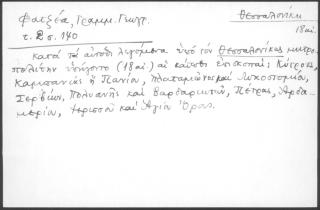 Φατζέα, Γραμμ. Γεωγρ.
τ. 2 σ. 140
Θεσσαλονίκη
18 αἰ.
Κατὰ τὰ αὐτόθι λεγόμενα ὑπὸ τὸν Θεσσαλονίκης μητρο-
πολίτην ὑπήγοντο (18 αἰ.) αἱ κάτωθι ἐπισκοπαί: Κίτρους,
Καμπανίας ἢ Πανίου, Πλαταμῶνος καὶ Λυκοστομίου,
Σερβίων, Πολυανῆς καὶ Βαρδαριωτῶν, Πέτρας, Ἀρδα-
μερίου, Ἱερισσοῦ καὶ Ἁγίου Ὄρους.